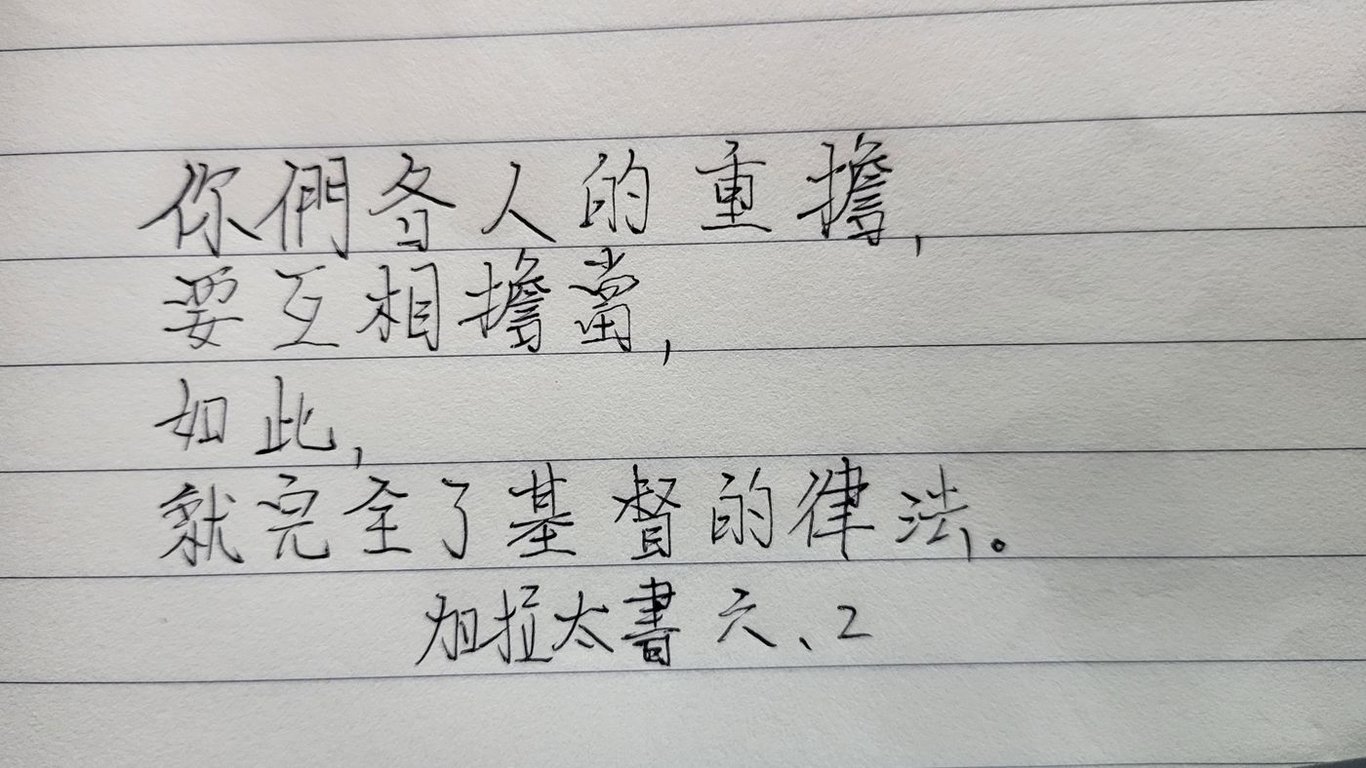 你們各人的重擔,
要互相擔當,
如此,
就完全了基督的律法。
加拉太書 六、2